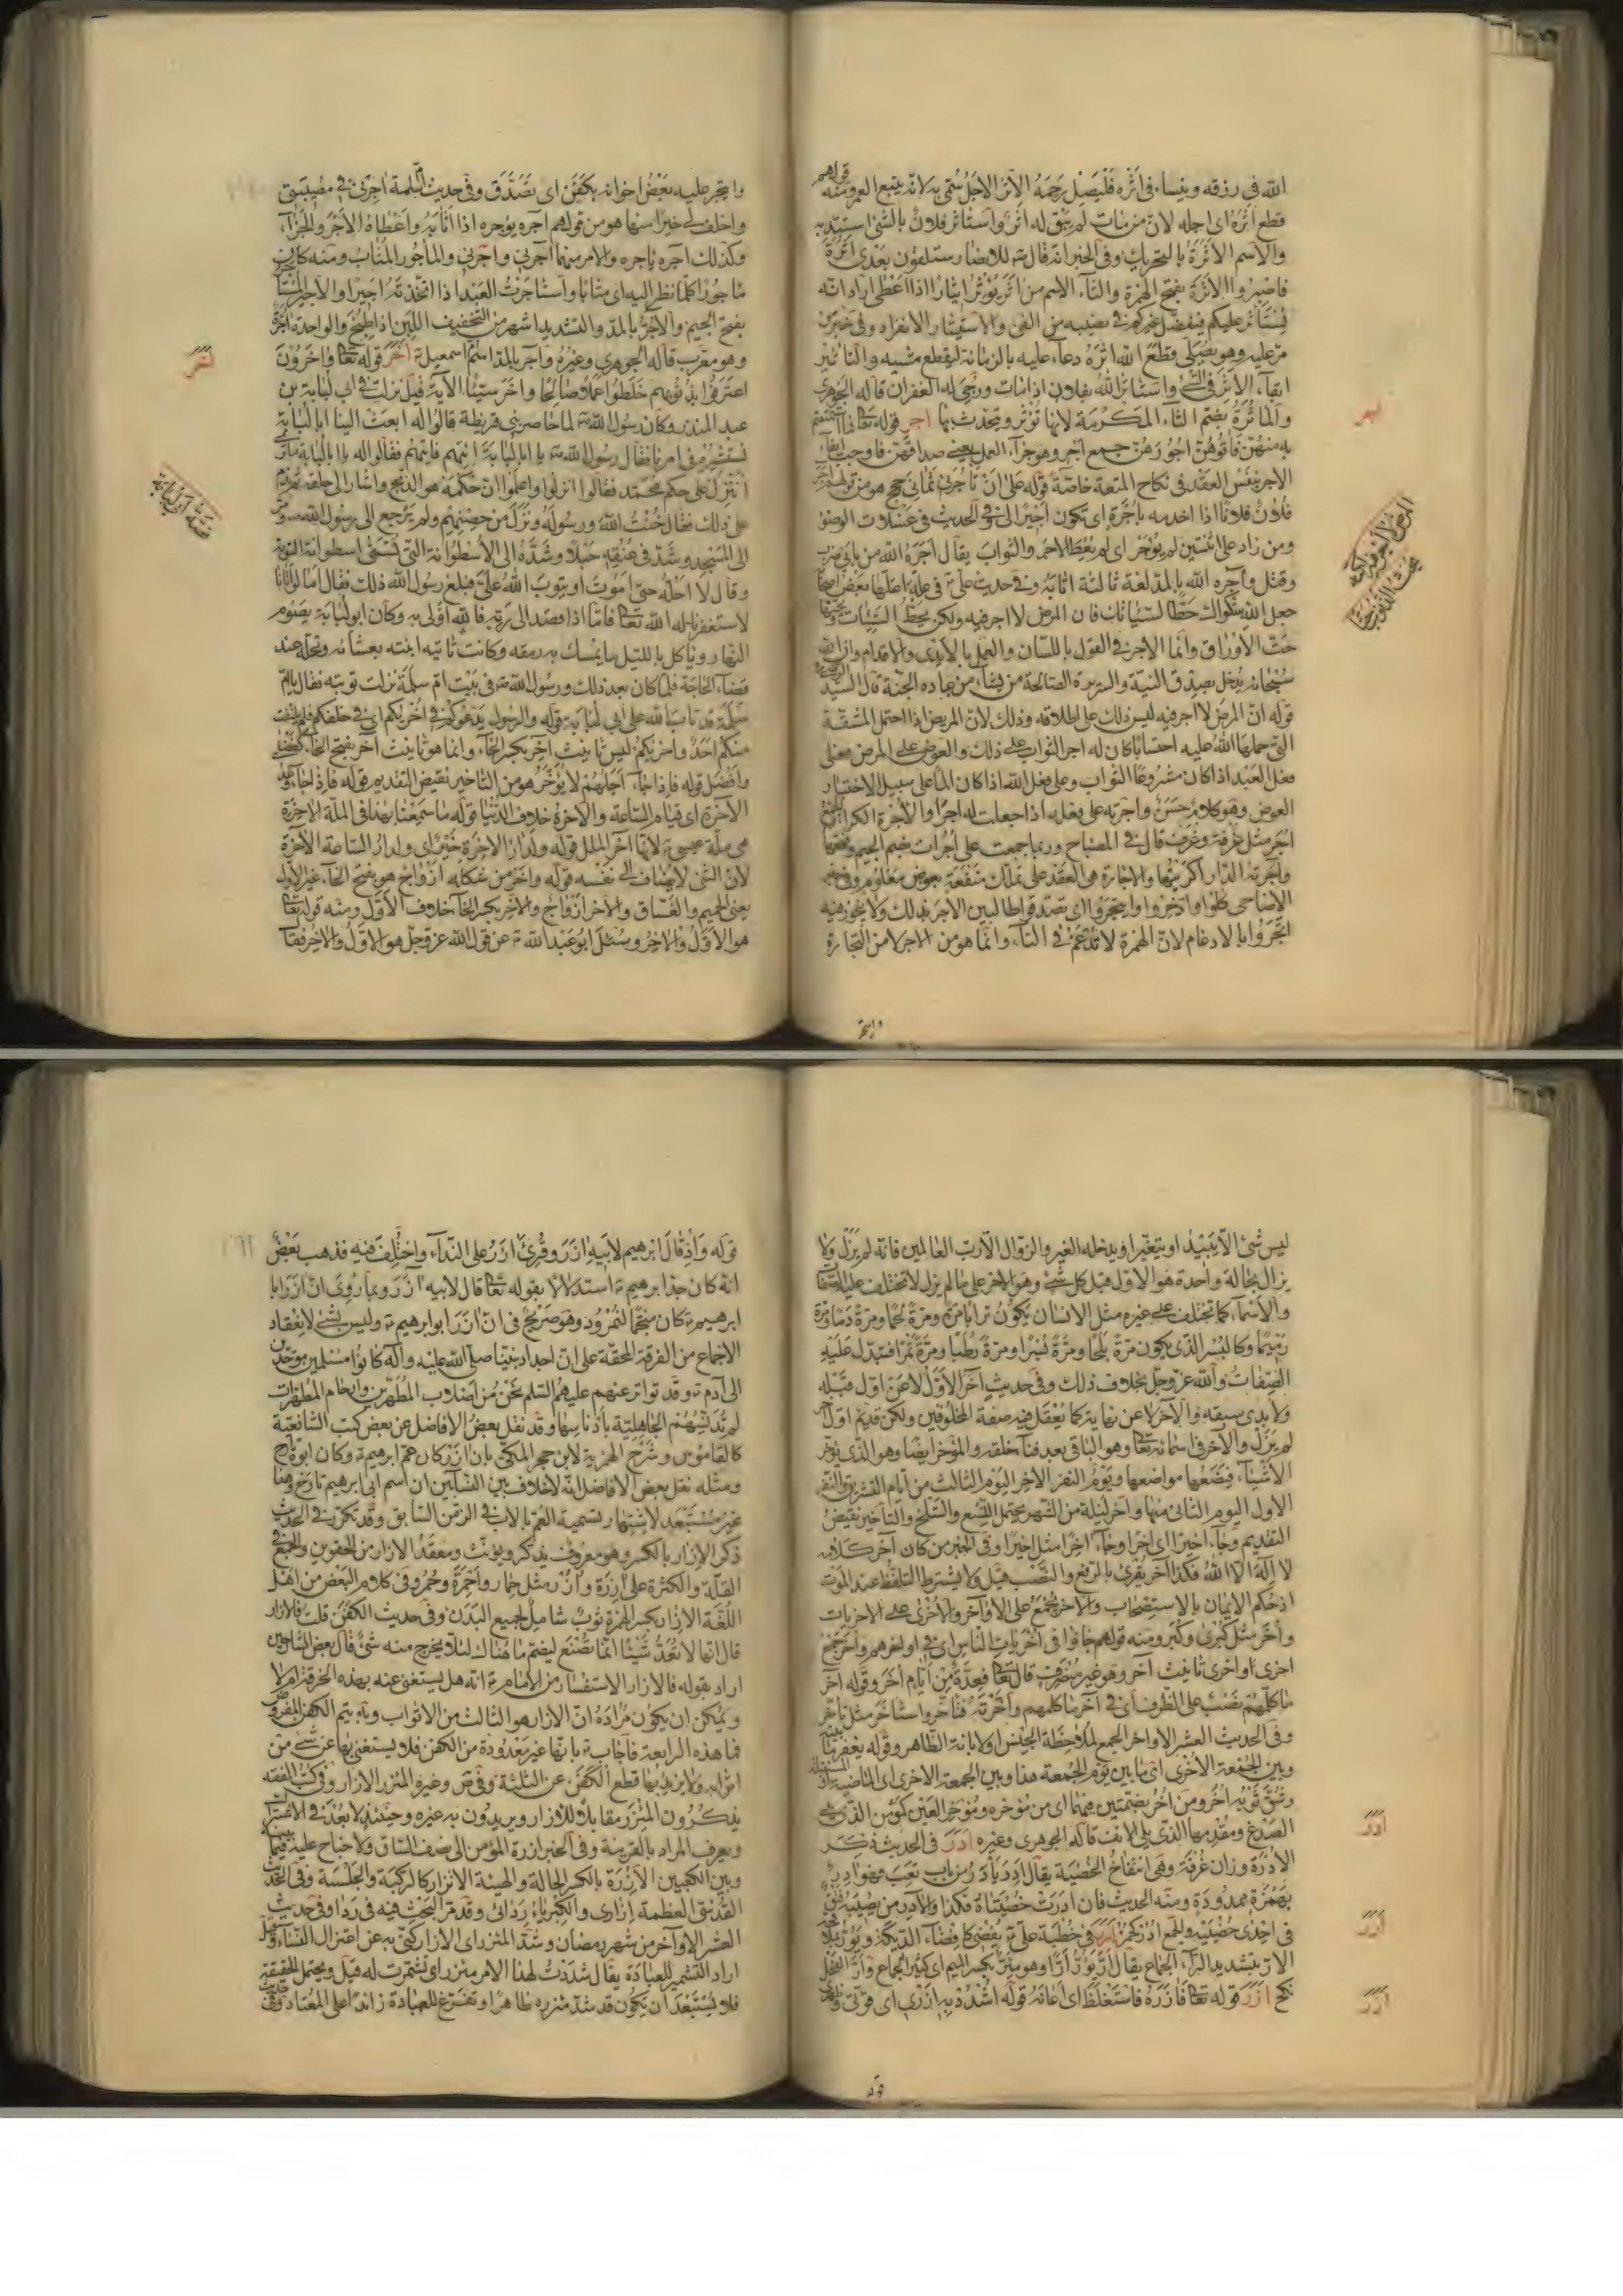 الله فى رزقه وينساء فى اثره فليصل رحمه الاثر الاجل سمى به لانه يتبع العمر ومنه قولهم
قطع اثره اى اجله لان من مات لم يبق له اثر واستاثر فلان بالشئ استبد به
والاسم الاثرة بالتحريك وفى الخبر انه قال للانصار ستلقون بعدى اثرة
فاصبروا الاثرة بفتح الهمزة والثاء الاسم من اثر يؤثر ايثارا اذا اعطى اراد انه
يستاثر عليكم فيفضل غيركم فى نصيبه من الفئ والاستيثار الانفراد وفى خبر من
مر عليه وهو يصلى قطع الله اثره دعاء عليه بالزمانة لينقطع مشيه والتاثير
ابقاء الاثر فى الشئ واستاثر الله بفلان اذا مات ورجى له الغفران قاله الجوهرى
والماثرة بضم الثاء المكرمة لانها تؤثر ويتحدث بها اجر قوله تعا فما استمتعتم
به منهن فاتوهن اجورهن جمع اجر وهو جزاء العمل يعنى صداقهن فاوجب ايفاء
الاجر بنفس العقد فى نكاح المتعة خاصة قوله على ان تاجرنى ثمانى حجج هو من قولهم اجر
فلان فلانا اذا خدمه باجرة اى تكون اجيرا لى وفى الحديث فى غسلات الوضوء
ومن زاد على اثنتين لم يؤجر اى لم يعط الاجر والثواب يقال اجره الله من بابى ضرب
وقتل وآجره الله بالمد لغة ثالثة اثابه وفى حديث على فى علة اعتلها بعض اصحابه
جعل الله شكواك حطا لسيئاتك فان المرض لا اجر فيه ولكن يحط السيئات ويحتها
حت الاوراق وانما الاجر فى القول باللسان والعمل بالايدى والاقدام وان الله
سبحانه يدخل بصدق النية والسريرة الصالحة من يشاء من عباده الجنة قال السيد
قوله ان المرض لا اجر فيه ليس ذلك على اطلاقه وذلك لان المريض اذا احتمل المشقة
التى حملها الله عليه احتسابا كان له اجر الثواب على ذلك والعوض على المرض فعلى
فعل العبد اذا كان مشروعا الثواب وعلى فعل الله اذا كان الما على سبيل الاختبار
العوض وهو كلام حسن واجرته على فعله اذا جعلت له اجرا والاجرة الكراء والجمع
اجر مثل غرفة وغرف قال فى المصباح وربما جمعت على اجرات بضم الجيم وفتحها
واجرته الدار اكريتها والاجارة هى العقد على تملك منفعة بعوض معلوم وفى خبر
الاضاحى كلوا وادخروا وايتجروا اى تصدقوا طالبين الاجر بذلك ولا يجوز فيه
اتجروا بالادغام لان الهمزة لا تدغم فى التاء وانما هو من الاجر لا من التجارة
اجر
وايتجر عليه بعض اخوانه بكفن اى تصدق وفى حديث ام سلمة اجرنى فى مصيبتى
واخلف لى خيرا منها هو من قولهم اجره يؤجره اذا اثابه واعطاه الاجر والجزاء
وكذلك اجره ياجره والامر منهما آجرنى واجرنى والماجور المثاب ومنه كان
ماجورا كلما نظر اليه اى مثابا واستاجرت العبد اذا اتخذته اجيرا والاجير المستاجر
بفتح الجيم والآجر بالمد والتشديد اشهر من التخفيف اللبن اذا طبخ والواحدة آجرة
وهو معرب قاله الجوهرى وغيره وآجر بالمد اسم ام اسمعيل اخر قوله تعا وآخرون
اعترفوا بذنوبهم خلطوا عملا صالحا وآخر سيئا الآية قيل نزلت فى ابى لبابة بن
عبد المنذر وكان رسول الله لما حاصر بنى قريظة قالوا له ابعث الينا ابا لبابة
نستشيره فى امرنا فقال رسول الله يا ابا لبابة ائتهم فاتيهم فقالوا له يا ابا لبابة ما ترى
اننزل على حكم محمد فقالوا انزلوا واعلموا ان حكمه هو الذبح واشار الى حلقه ثم ندم
على ذلك فقال خنت الله ورسوله ونزل من حصنهم ولم يرجع الى رسول الله ومر
الى المسجد وشد فى عنقه حبلا وشده الى الاسطوانة التى تسمى اسطوانة التوبة
وقال لا احله حتى اموت او يتوب الله على فبلغ رسول الله ذلك فقال اما لو اتانا
لاستغفرنا له الله تعا فاما اذا قصد الى ربه فالله اولى به وكان ابو لبابة يصوم
النهار وياكل بالليل ما يمسك به رمقه وكانت تاتيه ابنته بعشائه وتحله عند
قضاء الحاجة فلما كان بعد ذلك ورسول الله فى بيت ام سلمة نزلت توبته فقال يا ام
سلمة قد تاب الله على ابى لبابة قوله والرسول يدعوكم فى اخريكم اى فى خلفكم فلم يلتفت
منكم احد واخريكم ليس تانيث آخر بكسر الخاء وانما هو تانيث آخر بفتح الخاء كفضلى
وافضل قوله فاذا جاء اجلهم لا يؤخر هو من التاخير نقيض التقديم قوله فاذا جاء وعد
الآخرة اى قيام الساعة والآخرة خلاف الدنيا قوله ما سمعنا بهذا فى الملة الآخرة
هى ملة عيسى لانها آخر الملل قوله ولدار الآخرة خير اى ولدار الساعة الآخرة
لان الشئ لا يضاف الى نفسه قوله وآخر من شكله ازواج هو بفتح الخاء غير الاول
يعنى الحميم والغساق والآخر ازواج والآخر بكسر الخاء خلاف الاول ومنه قوله تعا
هو الاول والآخر وسئل ابو عبد الله عن قول الله عز وجل هو الاول والآخر فقال
اخر
قصة ابى لبابة
ليس شئ الا يبيد او يتغير او يدخله الغير والزوال الا رب العالمين فانه لم يزل ولا
يزال بحالة واحدة هو الاول قبل كل شئ وهو الاخر على ما لم يزل لا تختلف عليه الصفات
والاسماء كما تختلف على غيره مثل الانسان يكون ترابا مرة ومرة لحما ومرة دما ومرة
رميما وكالبسر الذى يكون مرة بلحا ومرة بسرا ومرة رطبا ومرة تمرا فتبدل عليه
الصفات والله عز وجل بخلاف ذلك وفى حديث آخر الاول لا عن اول قبله
ولا بدئ سبقه والآخر لا عن نهاية كما يعقل فيه صفة المخلوقين ولكن قديم اول آخر
لم يزل والآخر فى اسمائه تعا وهو الباقى بعد فناء خلقه والمؤخر ايضا وهو الذى يؤخر
الاشياء فيضعها مواضعها ويوم النفر الآخر اليوم الثالث من ايام التشريق والنفر
الاول اليوم الثانى منها وآخر ليلة من الشهر يحتمل التسع والسلخ والتاخير نقيض
التقديم وجاء اخيرا اى آخرا وجاء آخرا مثل اخيرا وفى الخبر من كان آخر كلامه
لا اله الا الله فكذا آخر يقرئ بالرفع والنصب قيل ولا يشترط التلفظ عند الموت
اذ حكم الايمان بالاستصحاب والآخر يجمع على الاواخر والاخرى على الاخريات
واخر مثل كبرى وكبر ومنه قولهم جاؤا فى اخريات الناس اى فى اواخرهم واخر جمع
اخرى واخرى تانيث آخر وهو غير منصرف قال تعا فعدة من ايام اخر وقوله آخر
ما كلمهم نصب على الظرف اى فى آخر ما كلمهم واخرته فتاخر واستاخر مثل تاخر
وفى الحديث العشر الاواخر الجمع لملاحظة الجنس ولابانة الظاهر وقوله يغفر ما بينه
وبين الجمعة الاخرى اى ما بين يوم الجمعة هذا وبين الجمعة الاخرى اى الماضية او المستقبلة
وشق ثوبه اخرا ومن اخر بضمتين فيهما اى من مؤخره ومؤخر العين كمؤمن الذى يلى
الصدغ ومقدمها الذى يلى الانف قاله الجوهرى وغيره ادر فى الحديث ذكر
الادرة وزان غرفة وهى انتفاخ الخصية يقال ادر يادر من باب تعب فهو آدر
بهمزة ممدودة ومنه الحديث فان ادرت خصيتاه فكذا والآدر من يصيبه فتق
فى احدى خصيتيه والجمع ادر كحمر ارر فى خطبة على يفضى كافضاء الديكة ويؤر بملاقحه
الار بتشديد الراء الجماع يقال ار يؤر ارا وهو مئر بكسر الميم اى كثير الجماع وار الفحل
نكح ازر قوله تعا فآزره فاستغلظ اى اعانه قوله اشدد به ازرى اى قوتى وظهرى
ادر
ارر
ازر
قوله واذ قال ابرهيم لابيه آزر وقرئ آزر على النداء واختلف فيه فذهب بعض
انه كان جد ابرهيم استدلالا بقوله تعا قال لابيه آزر وبما روى ان آزر ابا
ابرهيم كان منجما لنمرود وهو صريح فى ان آزر ابو ابرهيم وليس بشئ لانعقاد
الاجماع من الفرقة المحقة على ان اجداد نبينا صلى الله عليه وآله كانوا مسلمين موحدين
الى آدم وقد تواتر عنهم عليهم السلم نحن من اصلاب المطهرين وارحام المطهرات
لم تدنسهم الجاهلية بادناسها وقد نقل بعض الافاضل عن بعض كتب الشافعية
كالقاموس وشرح الهمزية لابن حجر المكى بان آزر كان عم ابرهيم وكان ابوه تارخ
ومثله نقل بعض الافاضل انه لا خلاف بين النسابين ان اسم ابى ابرهيم تارخ وهذا
غير مستبعد لاشتهار تسمية العم بالاب فى الزمن السابق وقد تكرر فى الحديث
ذكر الازار بالكسر وهو معروف يذكر ويؤنث ومعقد الازار من الحقوين والجمع فى
القلة والكثرة على آزرة وازر مثل حمار واحمرة وحمر وفى كلام البعض من اهل
اللغة الازار بكسر الهمزة ثوب شامل لجميع البدن وفى حديث الكفن قلت فالازار
قال انها لا تعد شيئا انما تصنع ليضم ما هناك لئلا يخرج منه شئ قال بعض الشارحين
اراد بقوله فالازار الاستفسار من الامام انه هل يستغنى عنه بهذه الخرقة ام لا
ويمكن ان يكون مراده ان الازار هو الثالث من الاثواب وبه يتم الكفن المفروض
فما هذه الرابعة فاجاب بانها غير معدودة من الكفن فلا يستغنى بها عن شئ من
اثوابه ولا يزيد بها قطع الكفن عن الثلثة وفى ص وغيره المئزر الازار وفى كتب الفقه
يذكرون المئزر مقابلا للازار ويريدون به غيره وحينئذ لا بعد فى الاشتراك
ويعرف المراد بالقرينة وفى الخبر ازرة المؤمن الى نصف الساق ولا جناح عليه فيما بينه
وبين الكعبين الازرة بالكسر الحالة والهيئة الاتزار كالركبة والجلسة وفى الحديث
القدسى العظمة ازارى والكبرياء ردائى وقد مر البحث فيه فى ردا وفى حديث
العشر الاواخر من شهر رمضان وشد المئزر اى الازار كنى به عن اعتزال النساء وقيل
اراد التشمير للعبادة يقال شددت لهذا الامر مئزرى تشمرت له قيل ويحتمل الحقيقة
فلا يستبعد ان يكون قد شد مئزره ظاهرا وتفرغ للعبادة زائدا على المعتاد وفى